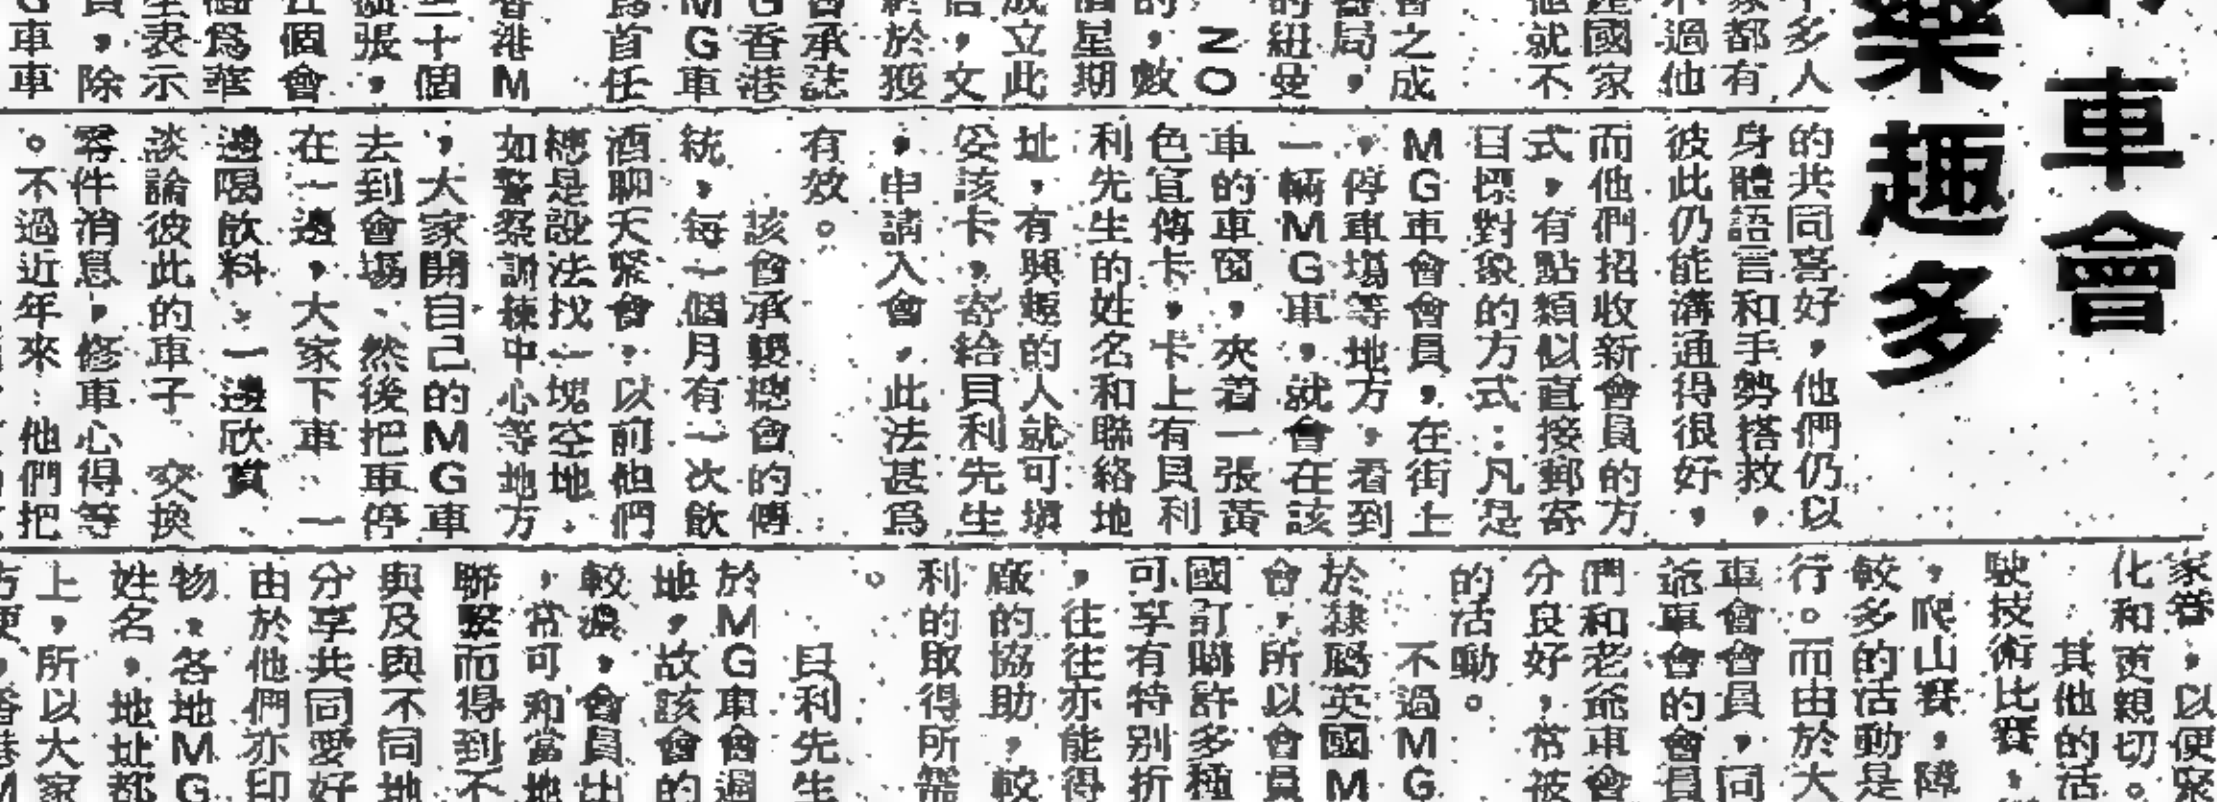 車會
樂趣多
多人
家都有
不過他
國家
他就不
會之成
局，
的紐曼
NO
的，數
星期
成立此
，文
於獲
承誌
G香港
MG車
爲首任
香港M
三十個
張，
個會
表示
，除
G車車
的共同喜好，他們仍以
身體語言和手勢搭救，
彼此仍能溝通得很好，
而他們招收新會員的方
式，有點類似直接郵寄
目標對象的方式：凡是
MG車會會員，在街上
，停車場等地方，看到
一輛MG車，就會在該
車的車窗，夾着一張黃
色宣傳卡，卡上有貝利
利先生的姓名和聯絡地
址，有興趣的人就可塡
妥該卡，寄給貝利先生
，申請入會，此法甚爲
有效。
該會承襲總會的傳
統，每一個月有一次飲
酒聊天聚會，以前他們
總是設法找一塊空地，
如警察訓練中心等地方
，大家開自己的MG車
去到會場、然後把車停
在一邊，大家下車 一
邊喝飲料、一邊欣賞、
談論彼此的車子 交換
零件消息，修車心得等
。不過近年來 他們把
家眷，以便聚
化和更親切。
其他的活
駛技術比賽，
，爬山賽，障
較多的活動是
行。而由於大
車會會員，同
爺車會的會員
們和老爺車會
分良好，常被
的活動。
不過MG
於隸屬英國M
會，所以會員
國訂購許多種
可享有特別折
，往往亦能得
廠的協助，較
利的取得所需
。
貝利先生
於MG車會週
地，故該會的
較濃，會員出
，常可和當地
聯繫而得到不
與及與不同地
分享共同愛好
由於他們亦印
物，各地MG
姓名，地址都
上，所以大家